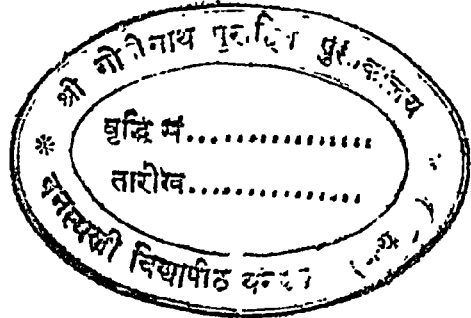 श्री गोपीनाथ पुरोहित पुस्तकालय
वृद्धि सं................
तारीख................
* वनस्थली विद्यापीठ